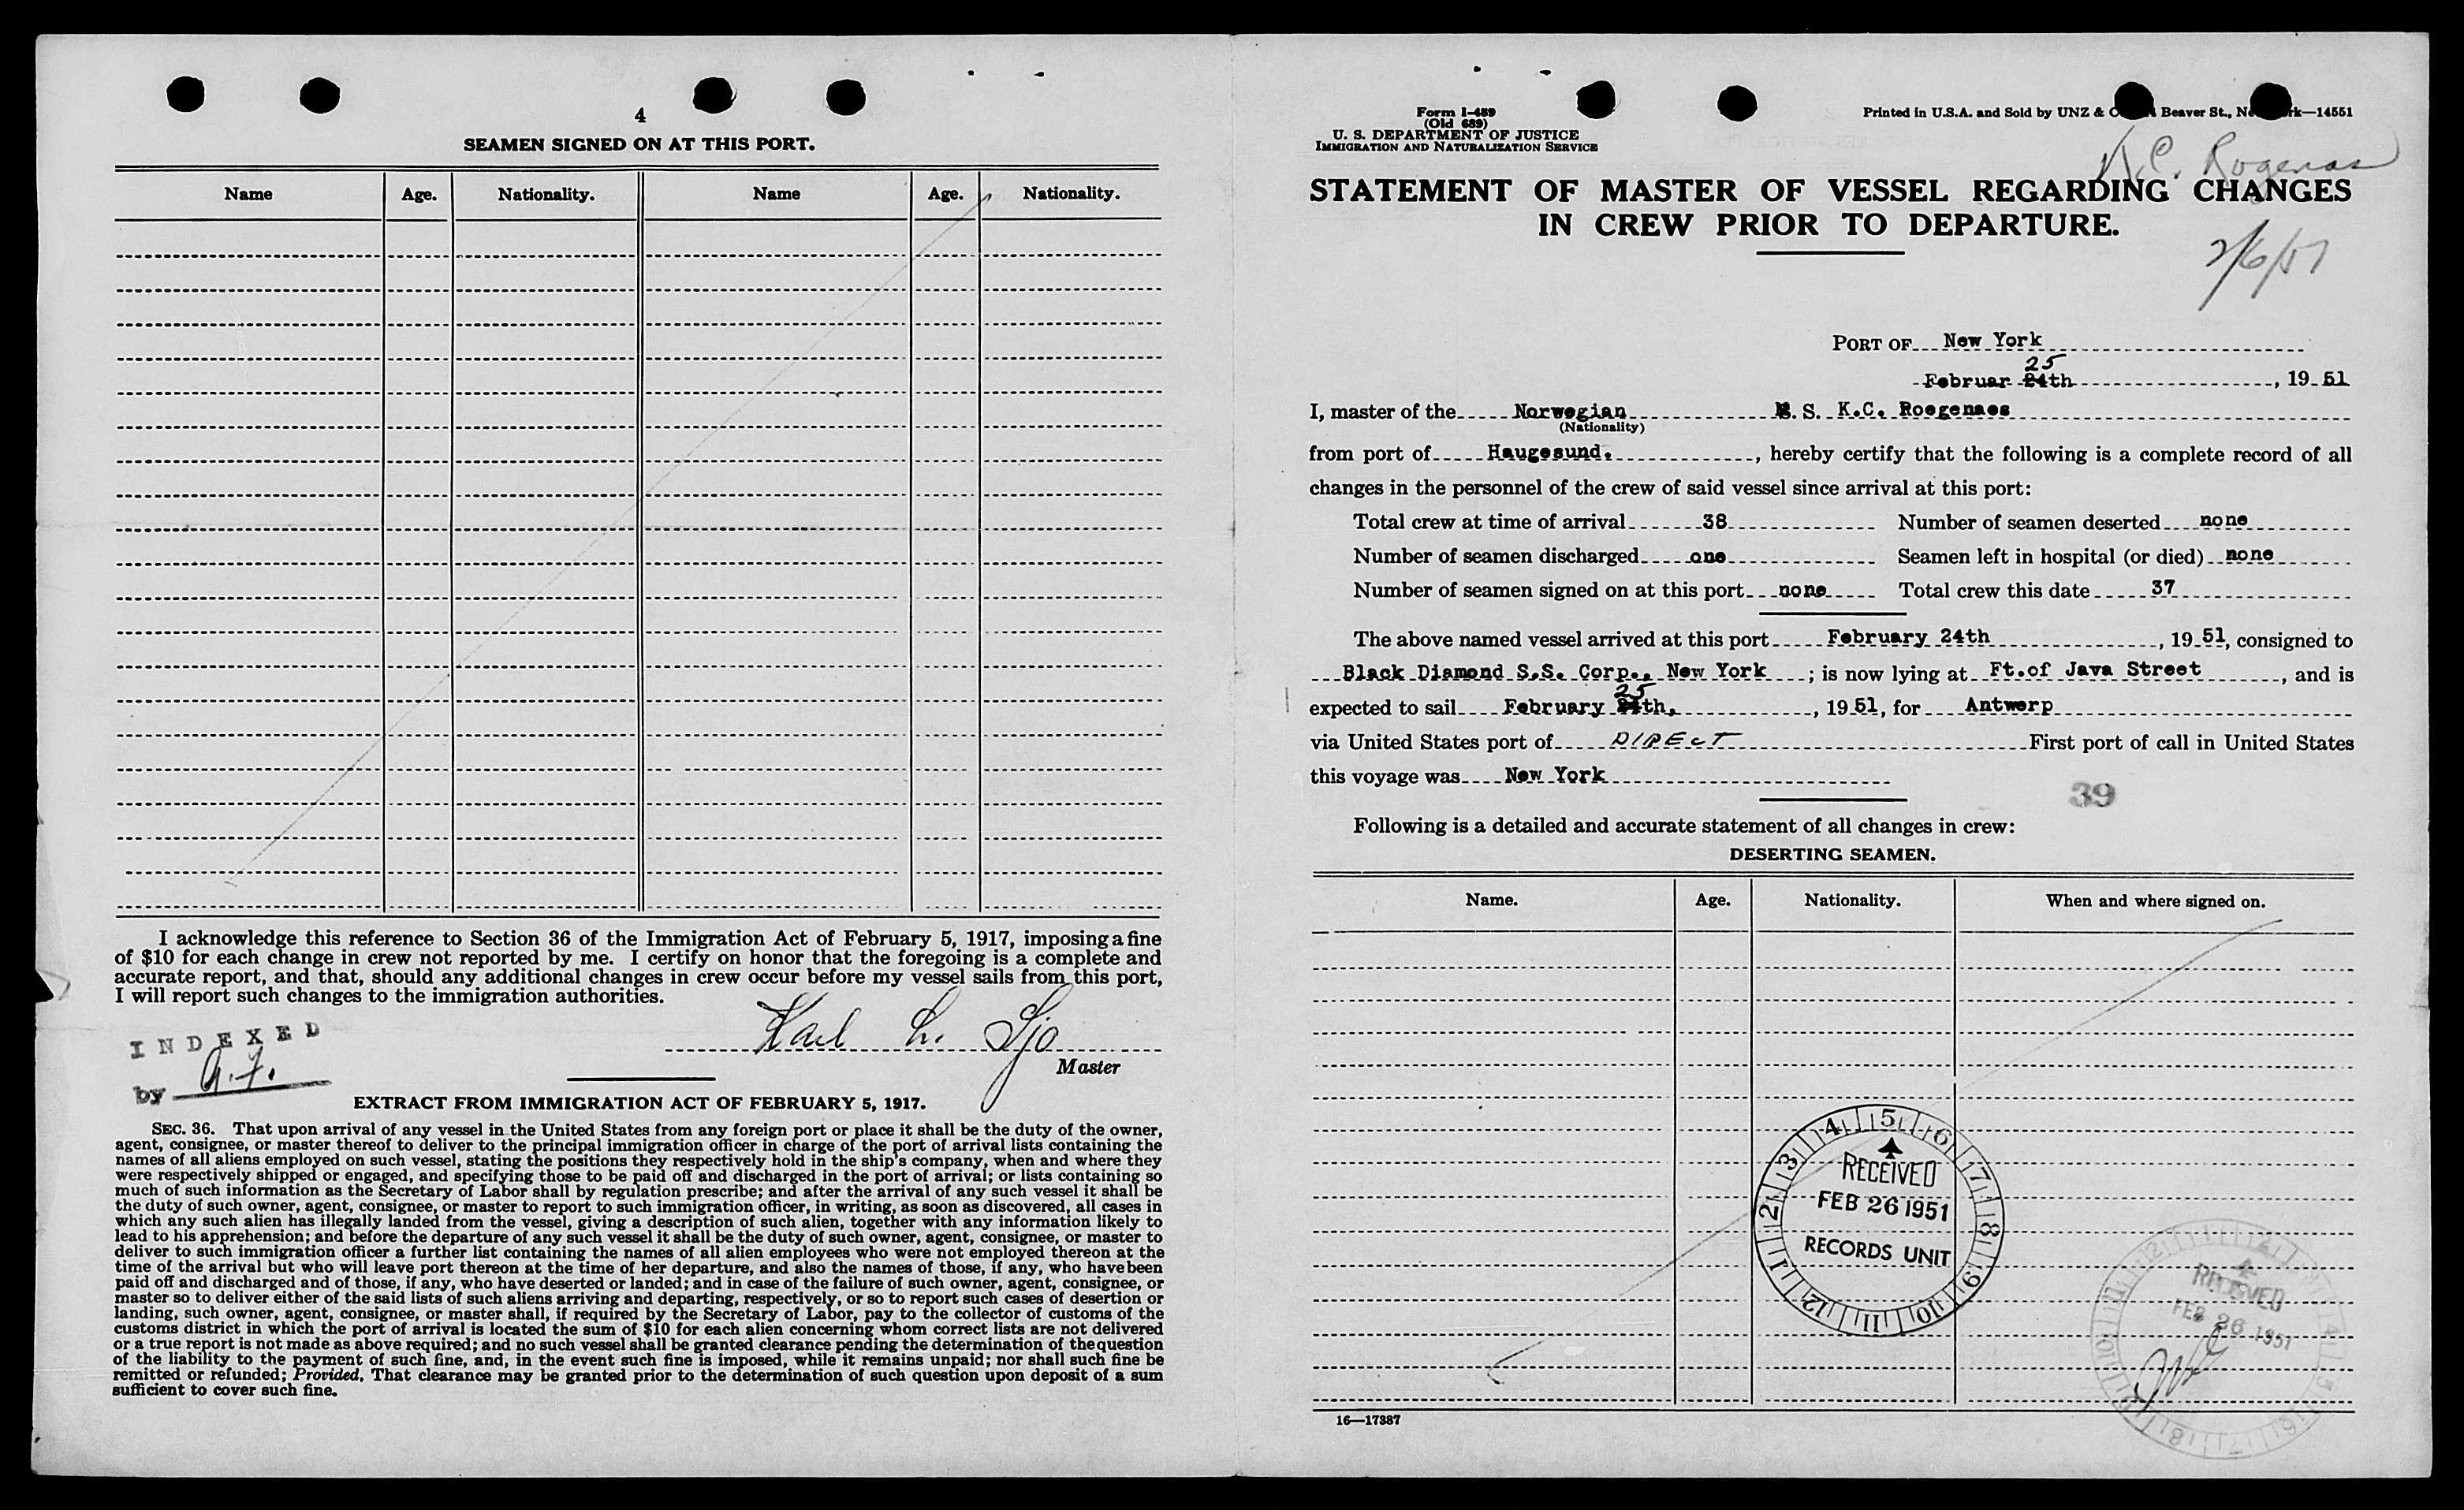 4
SEAMEN SIGNED ON AT THIS PORT.
Name Age. Nationality. Name Age. Nationality.
I acknowledge this reference to Section 36 of the Immigration Act of February 5, 1917, imposing a fine
of $10 for each change in crew not reported by me. I certify on honor that the foregoing is a complete and
accurate report, and that, should any additional changes in crew occur before my vessel sails from this port,
I will report such changes to the immigration authorities.
Karl L. Sjo
Master
INDEXED
by
EXTRACT FROM IMMIGRATION ACT OF FEBRUARY 5, 1917.
SEC. 36. That upon arrival of any vessel in the United States from any foreign port or place it shall be the duty of the owner,
agent, consignee, or master thereof to deliver to the principal immigration officer in charge of the port of arrival lists containing the
names of all aliens employed on such vessel, stating the positions they respectively hold in the ship's company, when and where they
were respectively shipped or engaged, and specifying those to be paid off and discharged in the port of arrival; or lists containing so
much of such information as the Secretary of Labor shall by regulation prescribe; and after the arrival of any such vessel it shall be
the duty of such owner, agent, consignee, or master to report to such immigration officer, in writing, as soon as discovered, all cases in
which any such alien has illegally landed from the vessel, giving a description of such alien, together with any information likely to
lead to his apprehension; and before the departure of any such vessel it shall be the duty of such owner, agent, consignee, or master to
deliver to such immigration officer a further list containing the names of all alien employees who were not employed thereon at the
time of the arrival but who will leave port thereon at the time of her departure, and also the names of those, if any, who have been
paid off and discharged and of those, if any, who have deserted or landed; and in case of the failure of such owner, agent, consignee, or
master so to deliver either of the said lists of such aliens arriving and departing, respectively, or so to report such cases of desertion or
landing, such owner, agent, consignee, or master shall, if required by the Secretary of Labor, pay to the collector of customs of the
customs district in which the port of arrival is located the sum of $10 for each alien concerning whom correct lists are not delivered
or a true report is not made as above required; and no such vessel shall be granted clearance pending the determination of the question
of the liability to the payment of such fine, and, in the event such fine is imposed, while it remains unpaid; nor shall such fine be
remitted or refunded; Provided, That clearance may be granted prior to the determination of such question upon deposit of a sum
sufficient to cover such fine.
Form I-489
(Old 689)
U. S. DEPARTMENT OF JUSTICE
IMMIGRATION AND NATURALIZATION SERVICE
Printed in U.S.A. and Sold by UNZ & Beaver St., —14551
K.C. Rogenas
STATEMENT OF MASTER OF VESSEL REGARDING CHANGES
IN CREW PRIOR TO DEPARTURE.
2/6/51
PORT OF New York
25
Februar 24th, 1951
I, master of the Norwegian M. S. K.C. Roegenaes
(Nationality)
from port of Haugesund., hereby certify that the following is a complete record of all
changes in the personnel of the crew of said vessel since arrival at this port:
Total crew at time of arrival 38 Number of seamen deserted none
Number of seamen discharged one Seamen left in hospital (or died) none
Number of seamen signed on at this port none Total crew this date 37
The above named vessel arrived at this port February 24th, 1951, consigned to
Black Diamond S.S. Corp., New York; is now lying at Ft.of Java Street, and is
25
expected to sail February 24th., 1951, for Antwerp
via United States port of DIRECT First port of call in United States
this voyage was New York
39
Following is a detailed and accurate statement of all changes in crew:
DESERTING SEAMEN.
Name. Age. Nationality. When and where signed on.
1 2 3 4 5 6 7 8 9 10 11 12
RECEIVED
FEB 26 1951
RECORDS UNIT
RECEIVED
FEB 26 1951
16—17387